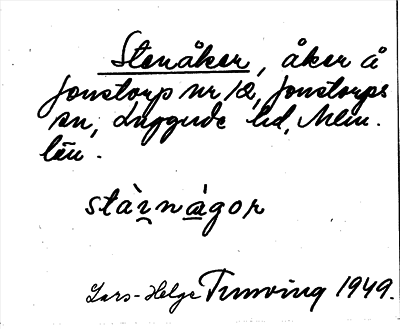 Stenåker, åker å
Jonstorp nr 12, Jonstorps
sn, Luggude hd, Malm.
län.
stàɪnàgor
Lars-Helge Tunving 1949.